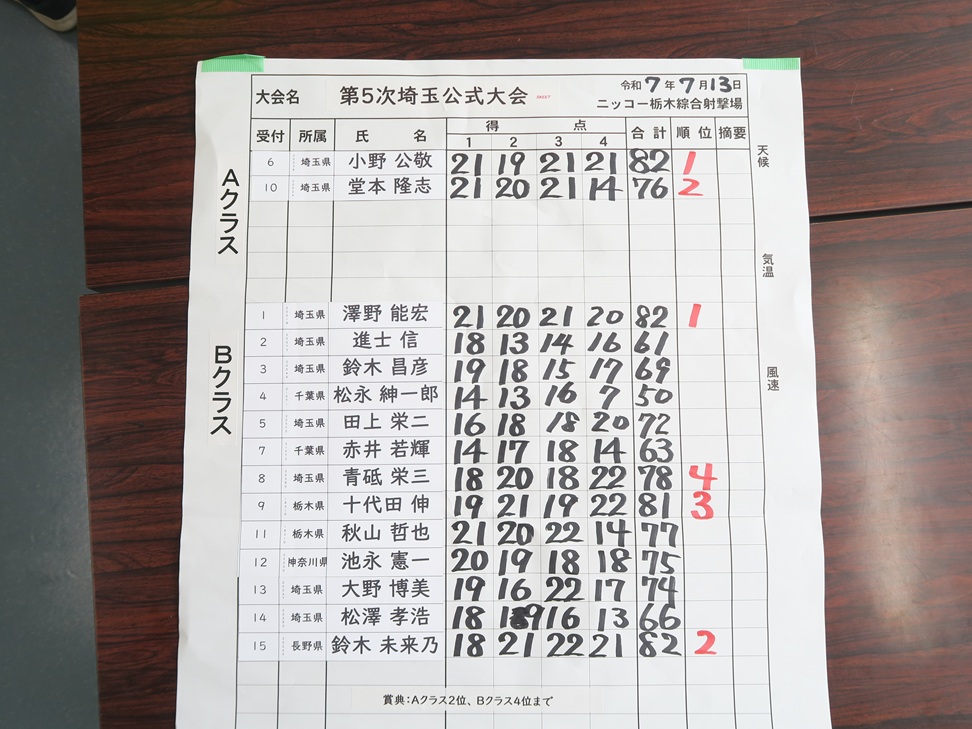 大会名 第5次埼玉公式大会 令和7年7月13日
ニッコー栃木綜合射撃場
受付 所属 氏名 得点 合計 順位 摘要
1 2 3 4
天候
気温
風速
Aクラス
6 埼玉県 小野 公敬 21 19 21 21 82 1
10 埼玉県 堂本 隆志 21 20 21 14 76 2
Bクラス
1 埼玉県 澤野 能宏 21 20 21 20 82 1
2 埼玉県 進士 信 18 13 14 16 61
3 埼玉県 鈴木 昌彦 19 18 15 17 69
4 千葉県 松永 紳一郎 14 13 16 7 50
5 埼玉県 田上 栄二 16 18 18 20 72
7 千葉県 赤井 若輝 14 17 18 14 63
8 埼玉県 青砥 栄三 18 20 18 22 78 4
9 栃木県 十代田 伸 19 21 19 22 81 3
11 栃木県 秋山 哲也 21 20 22 14 77
12 神奈川県 池永 憲一 20 19 18 18 75
13 埼玉県 大野 博美 19 16 22 17 74
14 埼玉県 松澤 孝浩 18 19 16 13 66
15 長野県 鈴木 未来乃 18 21 22 21 82 2
賞典：Aクラス2位、Bクラス4位まで